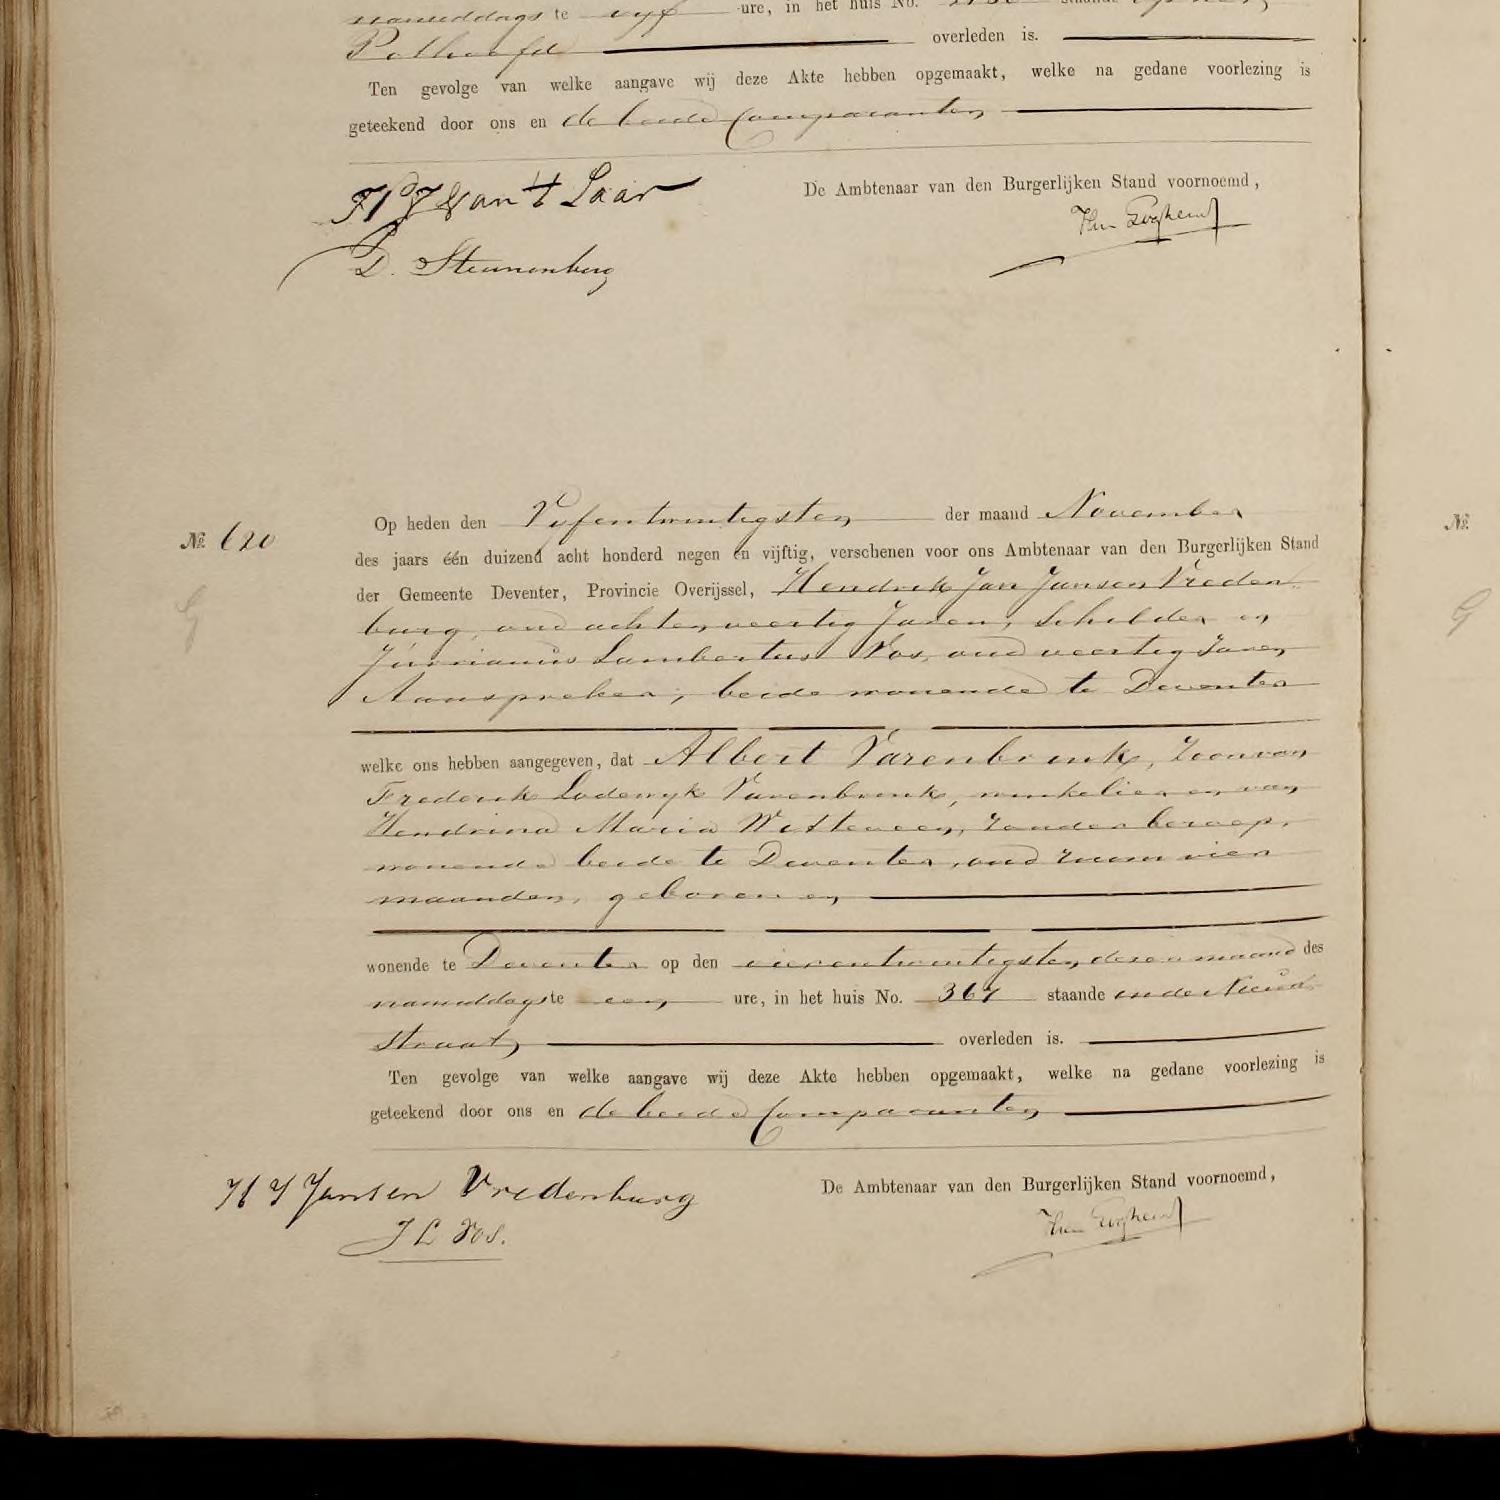 namiddags te vyf ure, in het huis No. staande op het
Pothoofd overleden is.
Ten gevolge van welke aangave wij deze Akte hebben opgemaakt, welke na gedane voorlezing is
geteekend door ons en de beide Comparanten
De Ambtenaar van den Burgerlijken Stand voornoemd,
van 't Laar
D. Steunenberg
Op heden den Vyfentwintigsten der maand November
№ 620
№
des jaars één duizend acht honderd negen en vijftig, verschenen voor ons Ambtenaar van den Burgerlijken Stand
der Gemeente Deventer, Provincie Overijssel, Hendrik Jan Jansen Vreden
burg, oud achtenveertig Jaren, Schilder en
G
G
Jurrianus Lambertus Vos, oud veertig Jaren
Aanspreker, beide wonende te Deventer
welke ons hebben aangegeven, dat Albert Varenbrink, Zoon van
Frederik Lodewyk Varenbrink, winkelier en van
Hendrina Maria Witteveen, zonder beroep,
wonende beide te Deventer, oud ruim vier
maanden, geboren en
wonende te Deventer op den vierentwintigsten dezer maand des
namiddags te een ure, in het huis No. 367 staande in de Nieuw
straat, overleden is.
Ten gevolge van welke aangave wij deze Akte hebben opgemaakt, welke na gedane voorlezing is
geteekend door ons en de beide Comparanten
H J Jansen Vredenburg
De Ambtenaar van den Burgerlijken Stand voornoemd,
J L Vos.